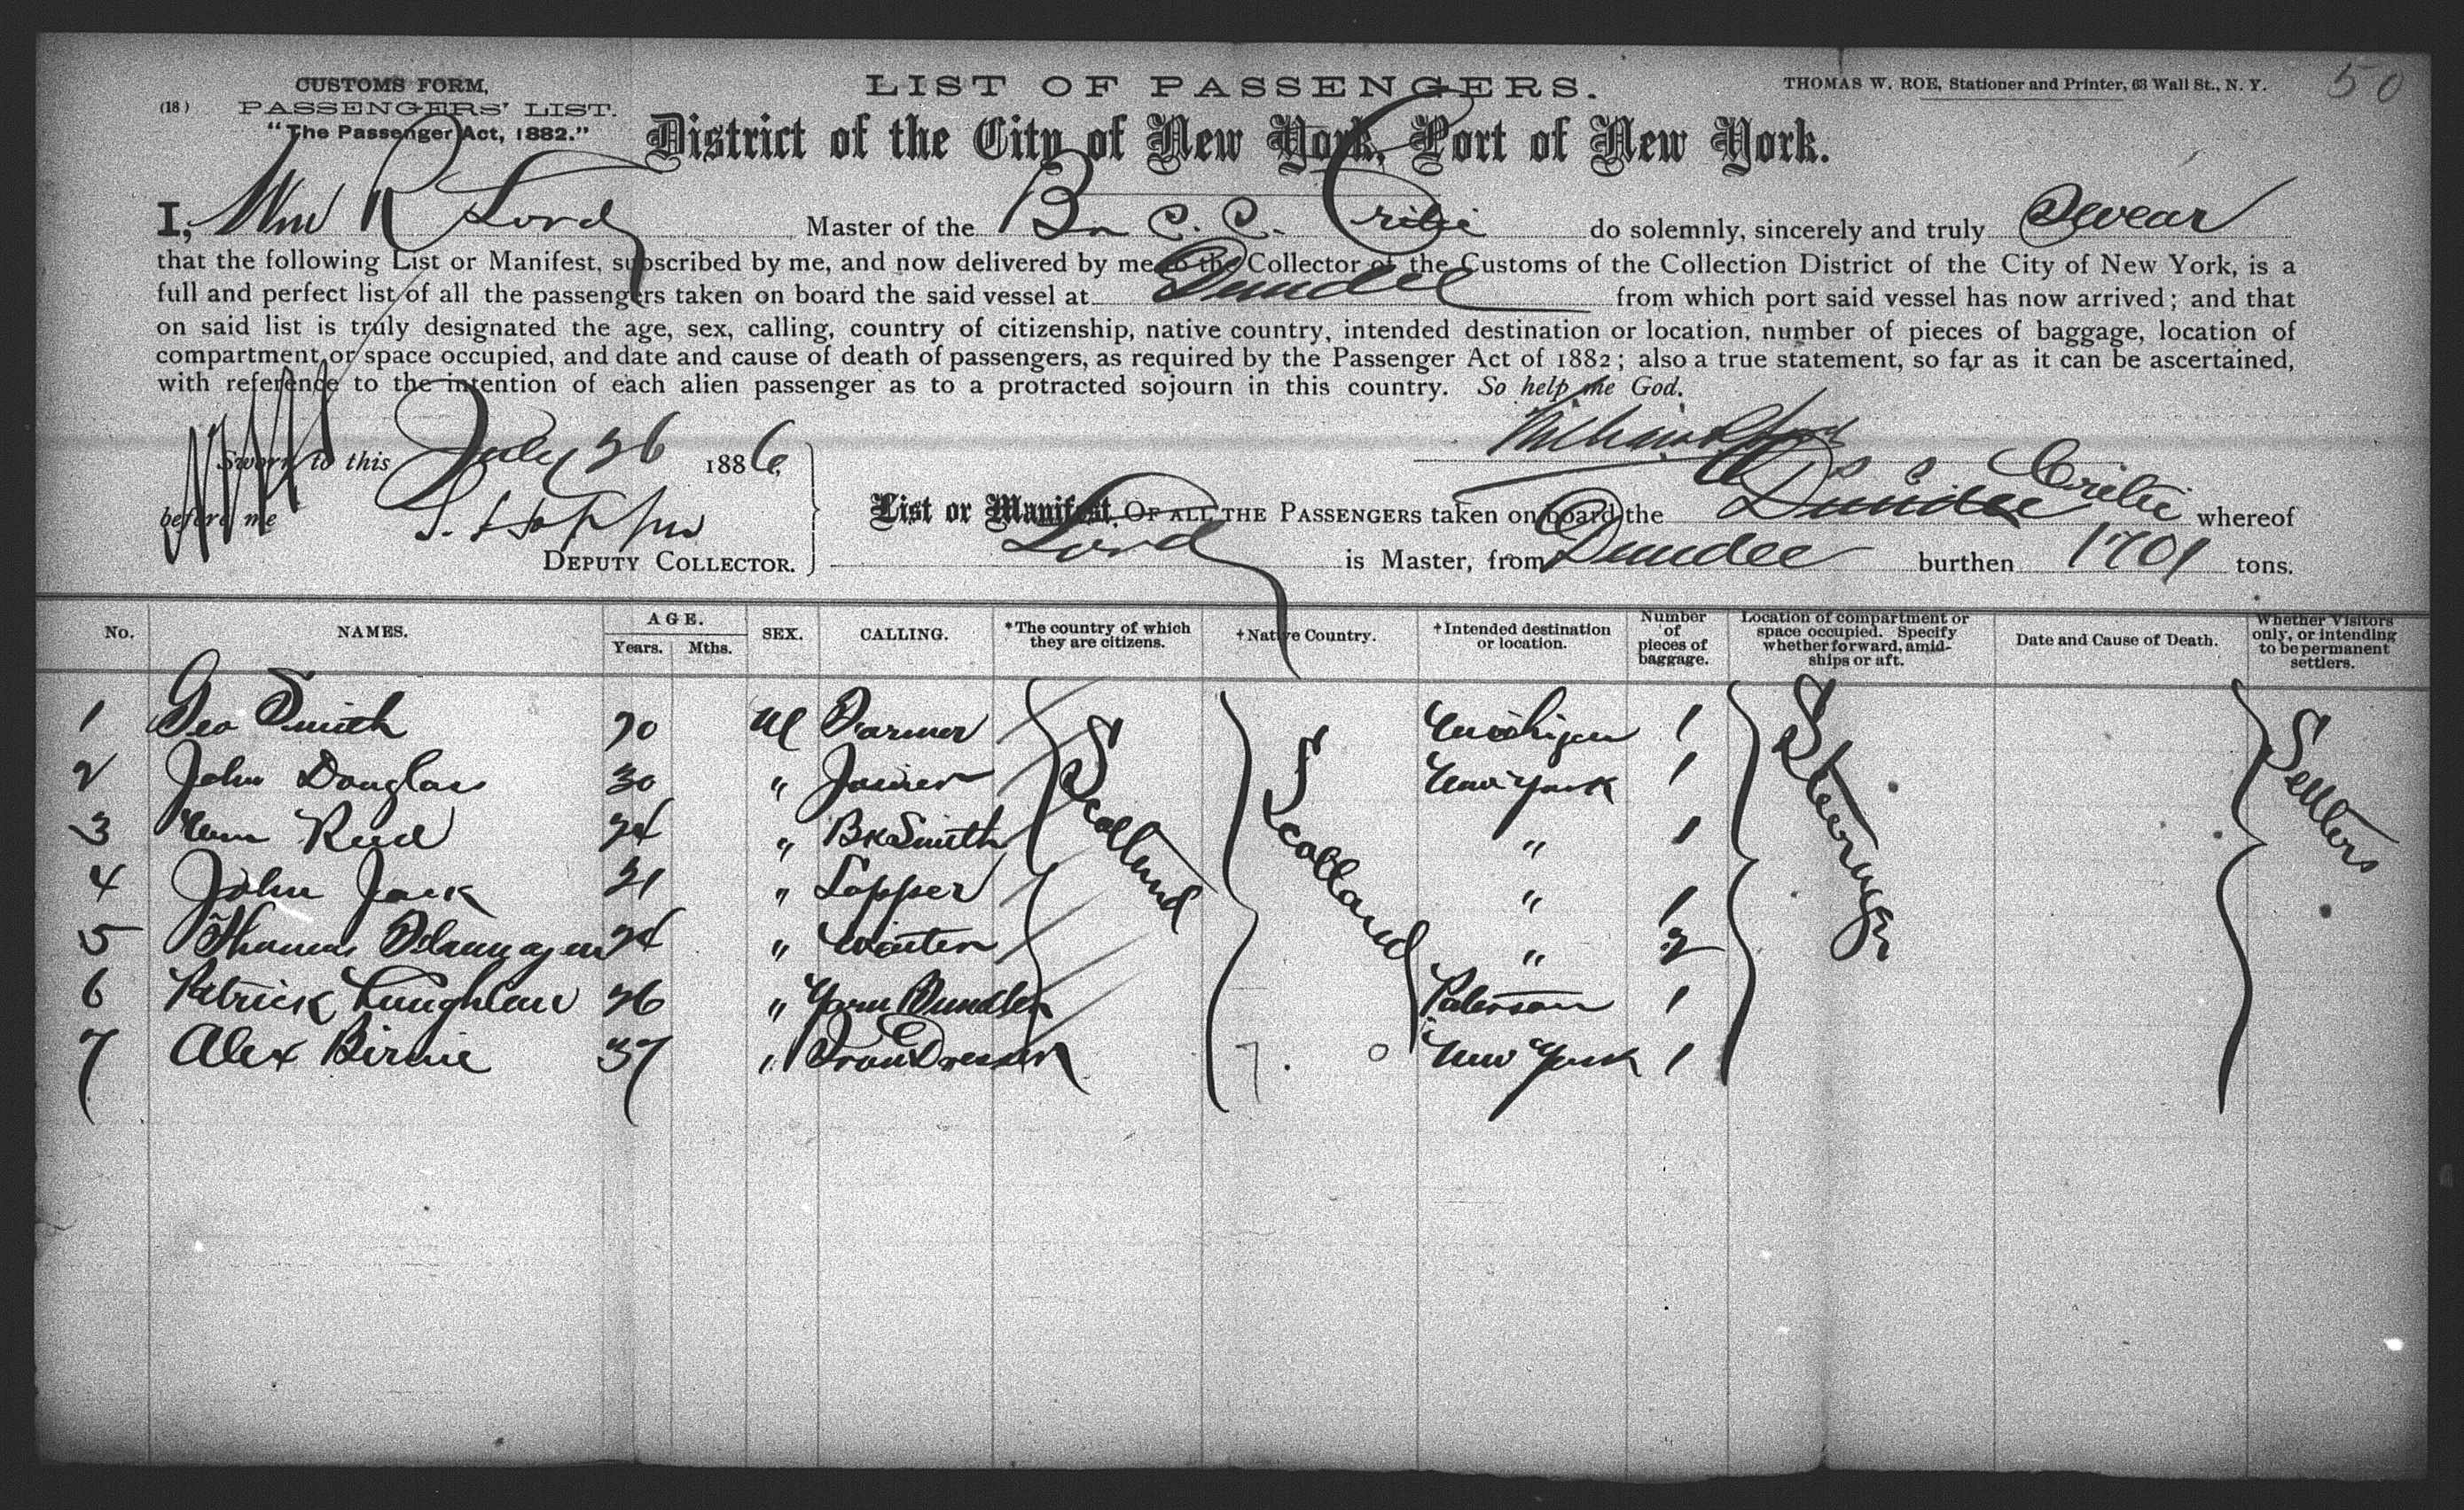 CUSTOMS FORM,
(18) PASSENGERS' LIST.
"The Passenger Act, 1882."
LIST OF PASSENGERS.
THOMAS W. ROE, Stationer and Printer, 63 Wall St., N. Y.
50
District of the City of New York, Port of New York.
I, Wm R Lord Master of the C. C. Critic do solemnly, sincerely and truly Swear
that the following List or Manifest, subscribed by me, and now delivered by me to the Collector of the Customs of the Collection District of the City of New York, is a
full and perfect list of all the passengers taken on board the said vessel at Dundee from which port said vessel has now arrived; and that
on said list is truly designated the age, sex, calling, country of citizenship, native country, intended destination or location, number of pieces of baggage, location of
compartment or space occupied, and date and cause of death of passengers, as required by the Passenger Act of 1882; also a true statement, so far as it can be ascertained,
with reference to the intention of each alien passenger as to a protracted sojourn in this country. So help me God.
Sworn to this July 26 1886,
before me
DEPUTY COLLECTOR.
List or Manifest, OF ALL THE PASSENGERS taken on board the Dundee Critic whereof
Lord is Master, from Dundee burthen 1701 tons.
No. NAMES. AGE. Years. Mths. SEX. CALLING. *The country of which they are citizens. †Native Country. †Intended destination or location. Number of pieces of baggage. Location of compartment or space occupied. Specify whether forward, amidships or aft. Date and Cause of Death. Whether Visitors only, or intending to be permanent settlers.
1 Geo Smith 20 M Farmer Scotland Scotland Michigan 1 Steerage Settlers
2 John Douglas 30 " Joiner New York 1
3 Wm Reid 24 " BkSmith " 1
4 John Jack 21 " Lapper " 1
5 Thomas 24 " " 2
6 Patrick 26 " Yarn Bundler Paterson 1
7 Alex Birnie 37 " New York 1